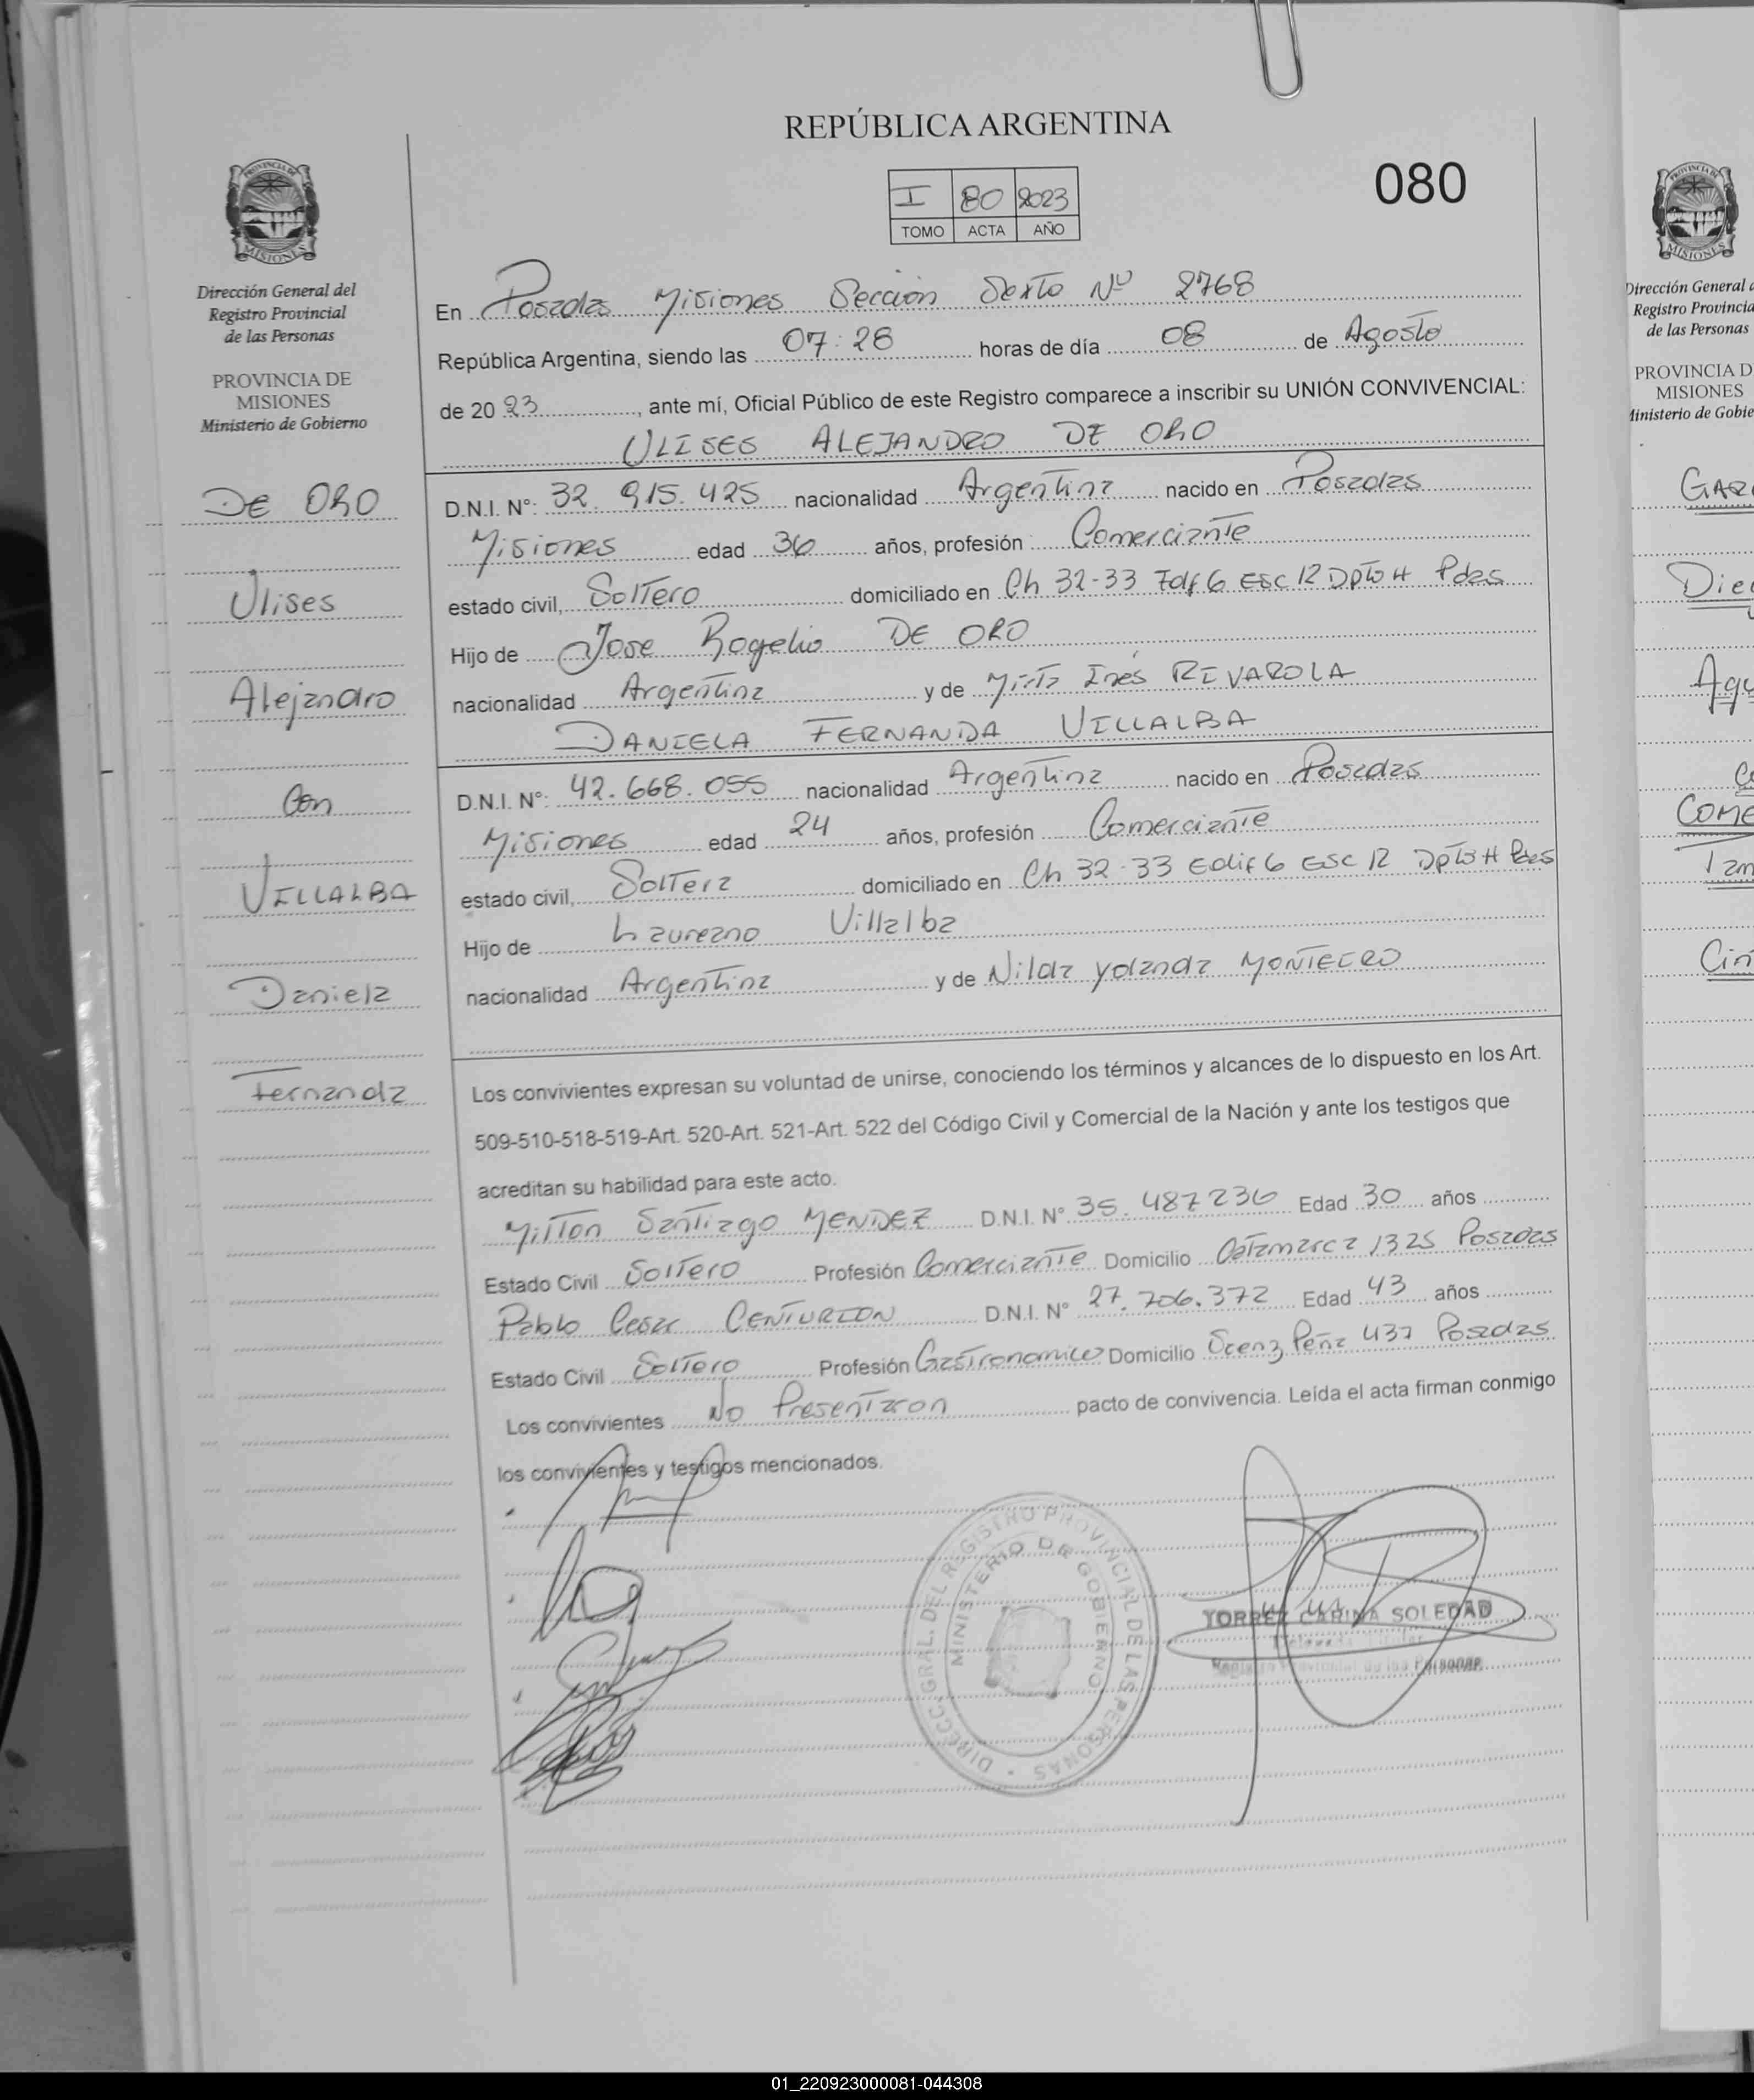 REPÚBLICA ARGENTINA
I 80 2023
TOMO ACTA AÑO
080
PROVINCIA DE
MISIONES
Dirección General del
Registro Provincial
de las Personas
PROVINCIA DE
MISIONES
Ministerio de Gobierno
DE ORO
Ulises
Alejandro
Con
VILLALBA
Daniela
Fernanda
En Posadas Misiones Sección Sexta Nº 2768
República Argentina, siendo las 07:28 horas de día 08 de Agosto
de 2023, ante mí, Oficial Público de este Registro comparece a inscribir su UNIÓN CONVIVENCIAL:
ULISES ALEJANDRO DE ORO
D.N.I. Nº: 32.915.425 nacionalidad Argentina nacido en Posadas
Misiones edad 36 años, profesión Comerciante
estado civil, Soltero domiciliado en Ch 32-33 Edf 6 Esc 12 Dpto H Pdas
Hijo de Jose Rogelio DE ORO
nacionalidad Argentina y de Mirta Inés RIVAROLA
DANIELA FERNANDA VILLALBA
D.N.I. Nº: 42.668.055 nacionalidad Argentina nacido en Posadas
Misiones edad 24 años, profesión Comerciante
estado civil, Soltera domiciliado en Ch 32-33 Edif 6 Esc 12 Dpto H Pdas
Hijo de Laureano Villalba
nacionalidad Argentina y de Nilda Yolanda MONTIEL
Los convivientes expresan su voluntad de unirse, conociendo los términos y alcances de lo dispuesto en los Art.
509-510-518-519-Art. 520-Art. 521-Art. 522 del Código Civil y Comercial de la Nación y ante los testigos que
acreditan su habilidad para este acto.
Milton Santiago MENDEZ D.N.I. Nº 35.487236 Edad 30 años
Estado Civil Soltero Profesión Comerciante Domicilio Catamarca 1325 Posadas
Pablo Cesar CENTURION D.N.I. Nº 27.706.372 Edad 43 años
Estado Civil Soltero Profesión Gastronomico Domicilio Saenz Peña 437 Posadas
Los convivientes No Presentaron pacto de convivencia. Leída el acta firman conmigo
los convivientes y testigos mencionados.
DIRECC. GRAL. DEL REGISTRO PROVINCIAL DE LAS PERSONAS
MINISTERIO DE GOBIERNO
TORRES CARINA SOLEDAD
Registro Provincial de las Personas
PROVINCIA DE
MISIONES
Dirección General d
Registro Provincia
de las Personas
PROVINCIA D
MISIONES
Ministerio de Gobie
Die
COME
Cin
01_220923000081-044308